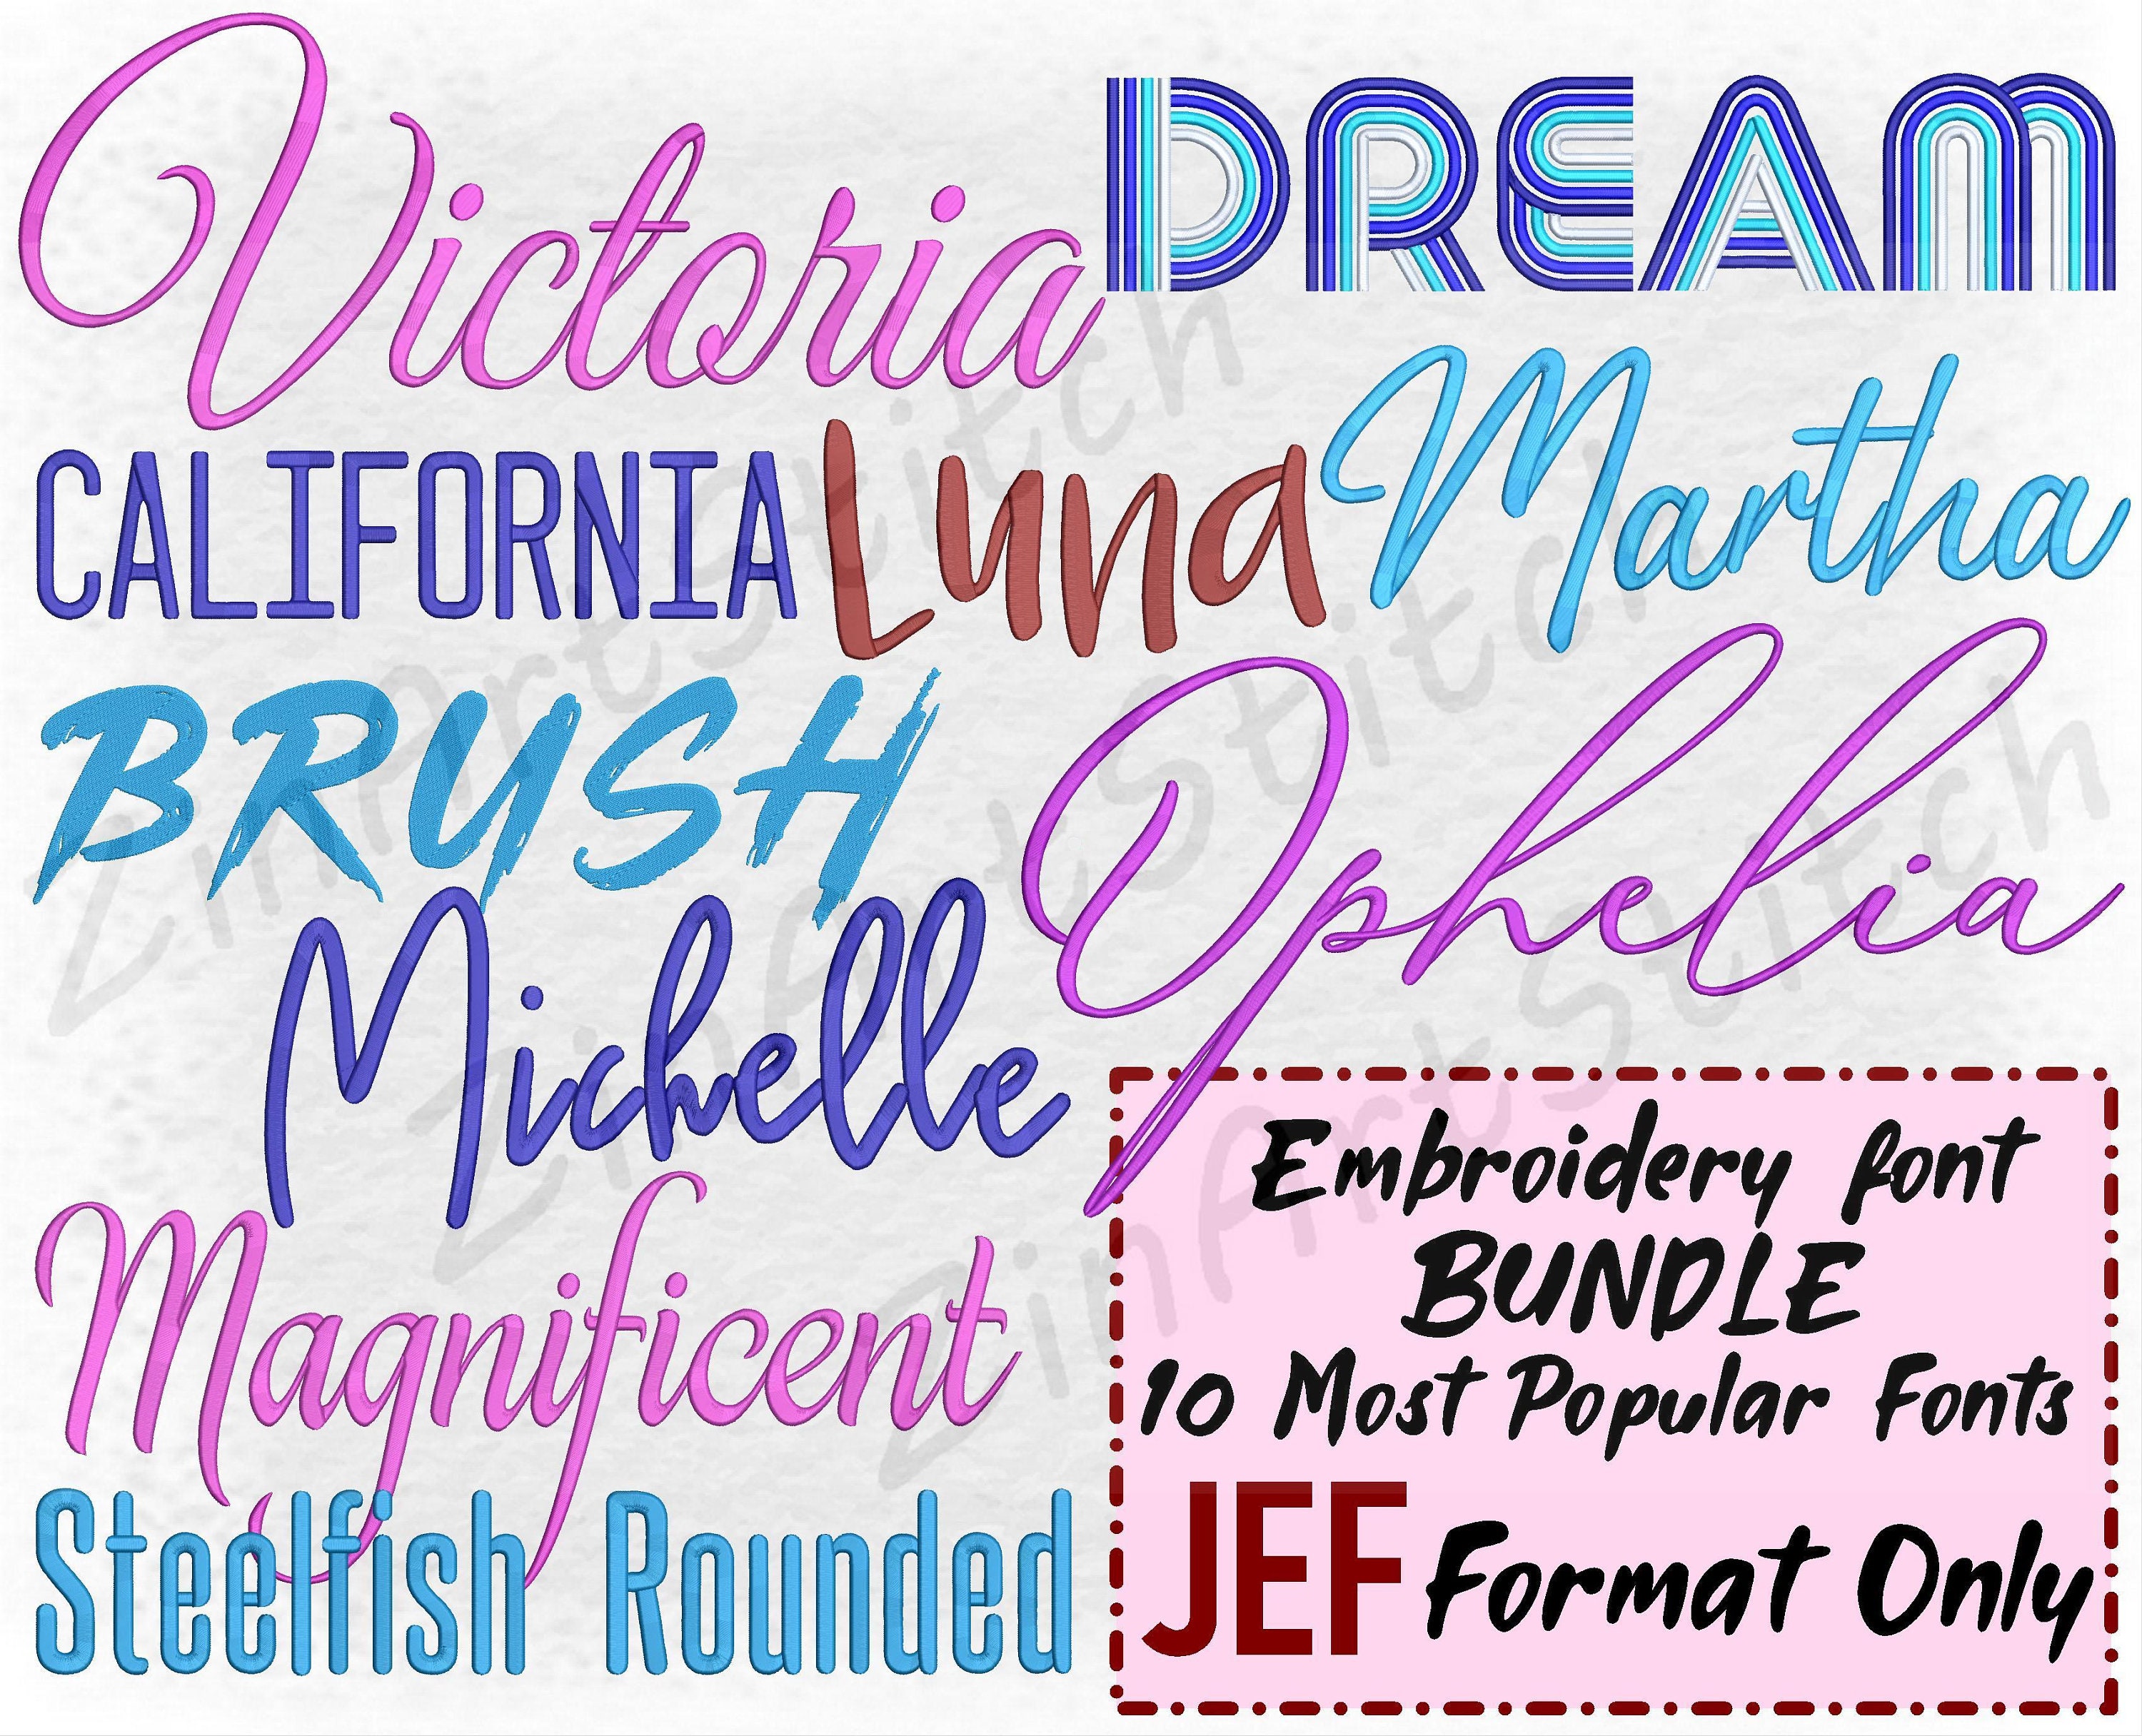 Victoria
DREAM
CALIFORNIA
Luna
Martha
BRUSH
Ophelia
Michelle
Magnificent
Steelfish Rounded
Embroidery font
BUNDLE
10 Most Popular Fonts
JEF Format Only
ZinArtStitch
ZinArtStitch
ZinArtStitch